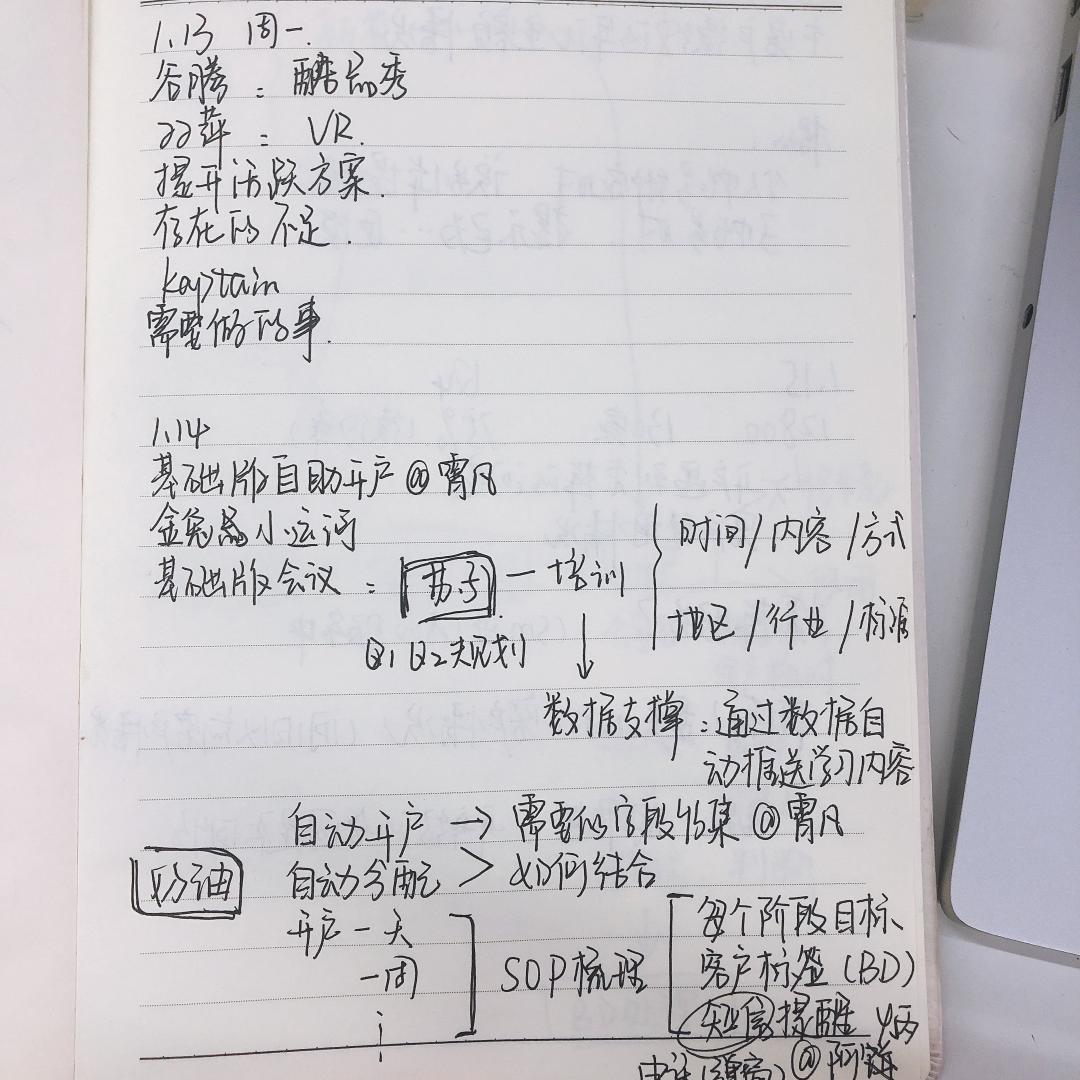 1.13 周一.
谷腾：酷品秀
双萍：VR.
提升活跃方案.
存在的不足.
kaptain
需要做的事.
1.14
基础版自助开户@霄凡
小运河
基础版会议：苏子 — 培训
时间/内容/方式
地区/行业/标准
Q1 Q2规划
数据支撑：通过数据自
动推送学习内容
自动开户 → 需要的字段收集@霄凡
自动分配 > 如何结合
开户一天
一周
SOP梳理
每个阶段目标
客户标签(BD)
短信提醒